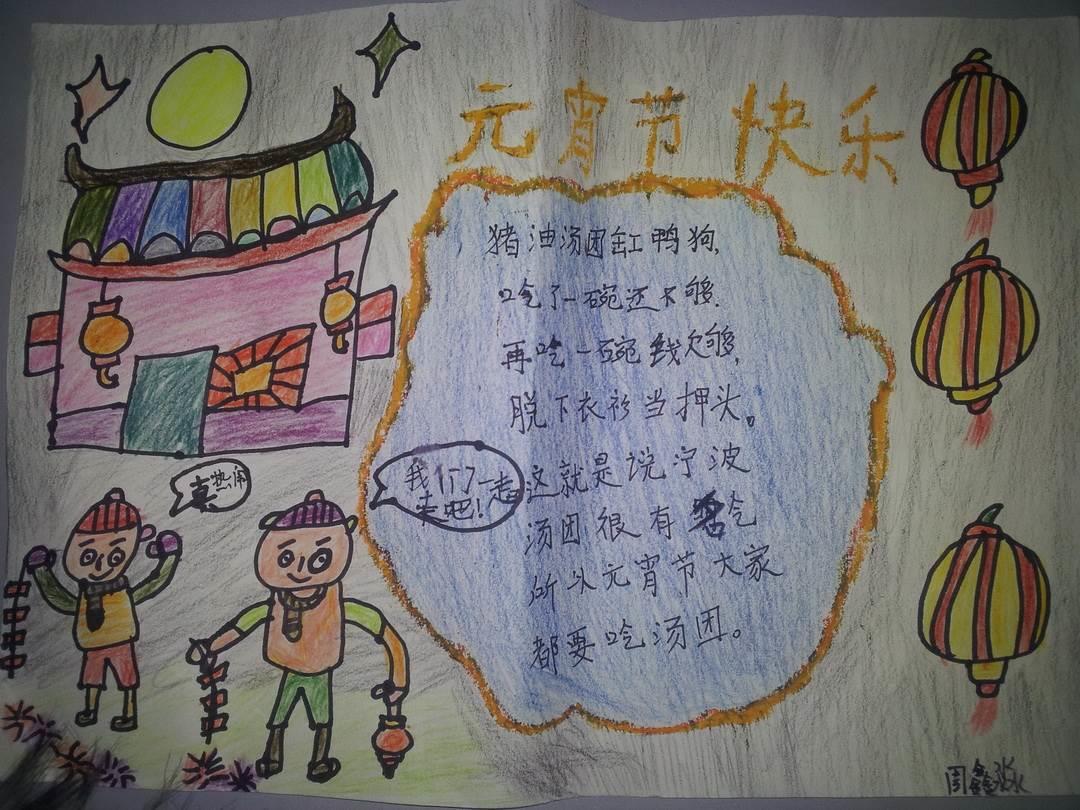 元宵节快乐
猪油汤团缸鸭狗,
吃了一碗还不够.
再吃一碗钱欠够,
脱下衣衫当押头。
这就是说宁波
汤团很有
所以元宵节大家
都要吃汤团。
我们一起
去吧!
真热闹
周鑫